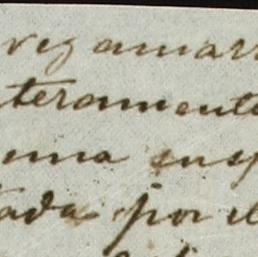 vez amarr
teramente
una susp
tada por el